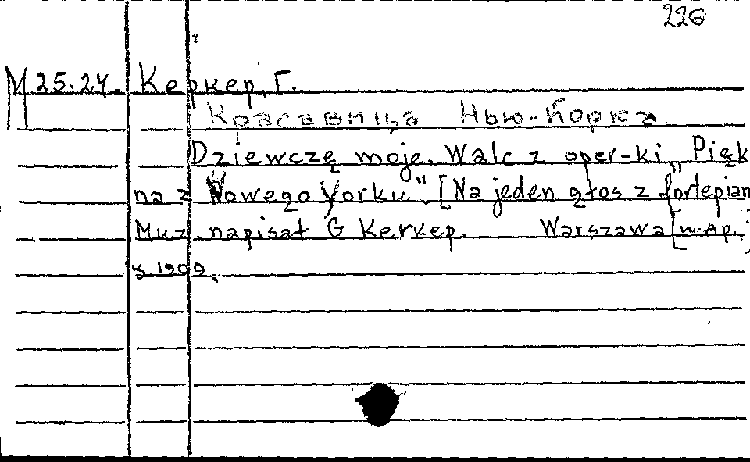 226
М 25.24. Керкер, Г.
Красавица Нью-Йорка
Dziewczę moje. Walc z oper-ki „Pięk
na z Nowego Yorku". [Na jeden głos z fortepian
Muz napisał G Керкер. Warszawa [
1909.